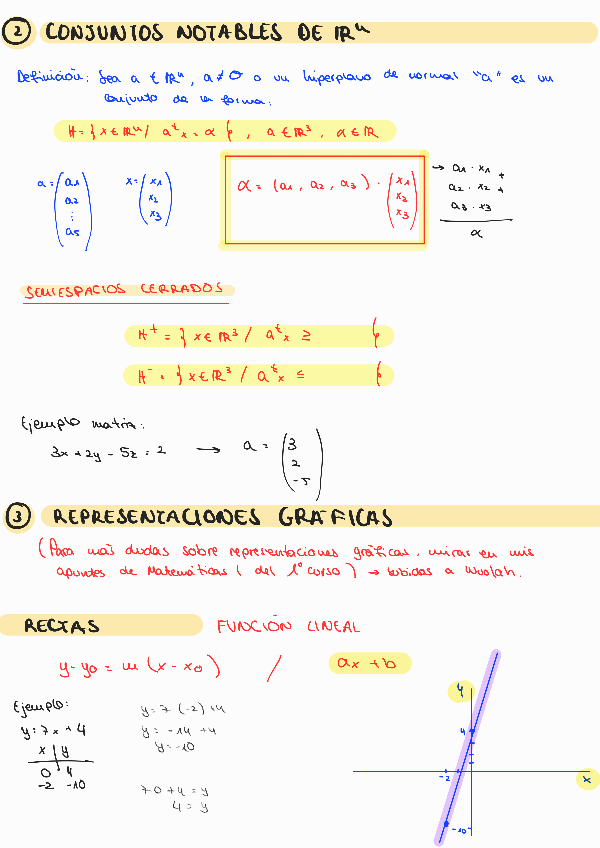 2 CONJUNTOS NOTABLES DE ℝⁿ
Definición: Sea a ∈ ℝⁿ, a ≠ 0 o un hiperplano de normal "a" es un
conjunto de la forma:
H = { x ∈ ℝⁿ / aᵗx = α }, a ∈ ℝ³, α ∈ ℝ
a = (a1 a2 ⋮ a5) x = (x1 x2 x3) α = (a1, a2, a3) · (x1 x2 x3) → a1 · x1 +
a2 · x2 +
a3 · x3
α
SEMIESPACIOS CERRADOS
H⁺ = { x ∈ ℝ³ / aᵗx ≥ }
H⁻ = { x ∈ ℝ³ / aᵗx ≤ }
Ejemplo matriz:
3x + 2y - 5z = 2 → a = (3 2 -5)
3 REPRESENTACIONES GRÁFICAS
(Para más dudas sobre representaciones gráficas, mirar en mis
apuntes de Matemáticas ( del 1º curso ) → subidas a Wuolah.
RECTAS FUNCIÓN LINEAL
y - y0 = m (x - x0) / ax + b
Ejemplo:
y = 7x + 4
x y
0 4
-2 -10
y = 7 (-2) + 4
y = -14 + 4
y = -10
7·0 + 4 = y
4 = y
y
4
-2
x
-10